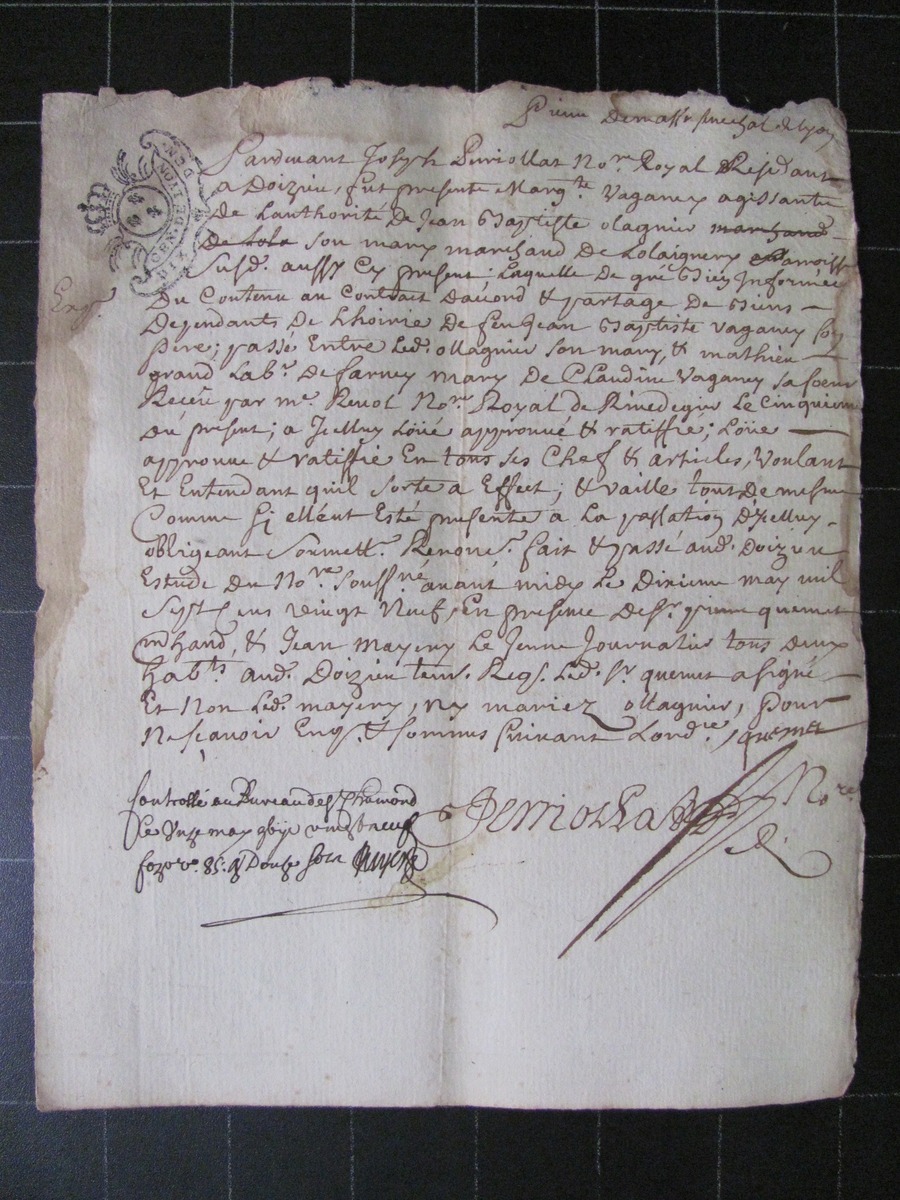 Pardevant Joseph Perriollat No.re Royal Residant
a Doizieu, fut presente Marg.te Vaganey agissante
De Lauthorité De Jean Baptiste ollagnier marchand
son mary marchand De
susd. aussy Cy present; Laquelle De gré Bien Informée
Eng.
Du Contenu au Contrait Dacord & partage De Biens
Dependants De Lhoirie De feu Jean Baptiste Vaganey son
pere; passé Entre Led. ollagnier son mary, & mathieu
grand Lab.r De farney mary De CLaudine Vaganey sa soeur
Receu par m.e No.re Royal de Le Cinquieme
du present; a Icelluy Loüé approuvé & ratiffié; Loüe
approuve & ratiffie En tous ses Chef & articles, Voulant
Et Entendant quil sorte a Effect; & vaille tout De mesme
Comme sy ellent Esté presente a La passation D'Icelluy
obligeant soumett. Renonc. fait & passé aud. Doizieu
Estude Du No.re souss.né avant midy Le Dixieme may mil
sept Cens vingt Neuf, En presence De s.r pierre quemet
mchand, & Jean mayery Le Jeune Journalier tous deux
habts. aud. Doizieu tem. Reqs. Led. s.r quemet a signé
Et Non Led. mayery, ny mariez ollagnier, pour
Ne sçavoir Enq. & sommes suivant Lord.ce quemet
Perriollat No.re
R.
Controllé au Bureau de S.t Chamond
Le Unze may vingt neuf
fo. v.o 85. R Douze sols
GEN. DE LYON
DIX DEN.